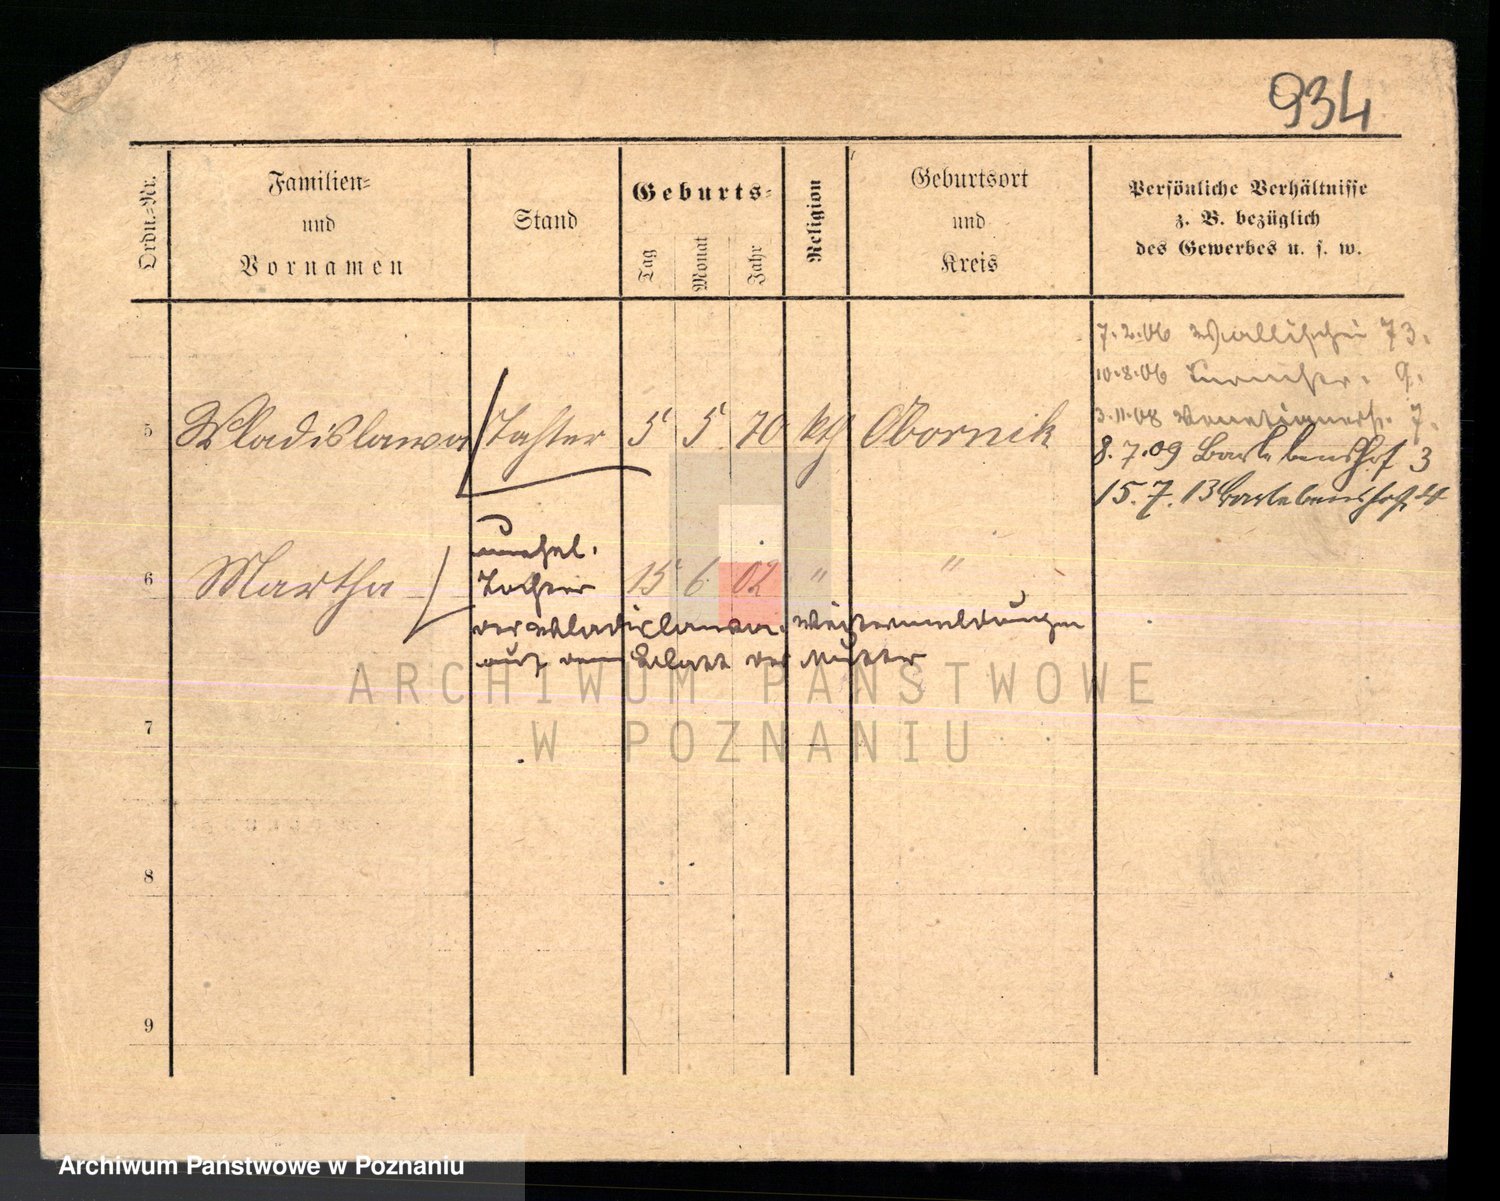 934
Ordn.-Nr.
Familien-
und
Vornamen
Stand
Geburts-
Tag
Monat
Jahr
Religion
Geburtsort
und
Kreis
Persönliche Verhältnisse
z. B. bezüglich
des Gewerbes u. s. w.
7.2.06 Wallischei 73.
10.8.06 9.
3.11.08 Venetianerstr. 7.
8.7.09 Bartlebenshof 3
15.7.13 Bartlebenshof 4
5 Wladislawa Tochter 5 5 70 kth Obornik
unehel.
6 Martha Tochter 15 6 02 " "
der Wladislawa. Weitermeldungen
auf dem Blatt der Mutter
7
8
9
ARCHIWUM PAŃSTWOWE
W POZNANIU
Archiwum Państwowe w Poznaniu